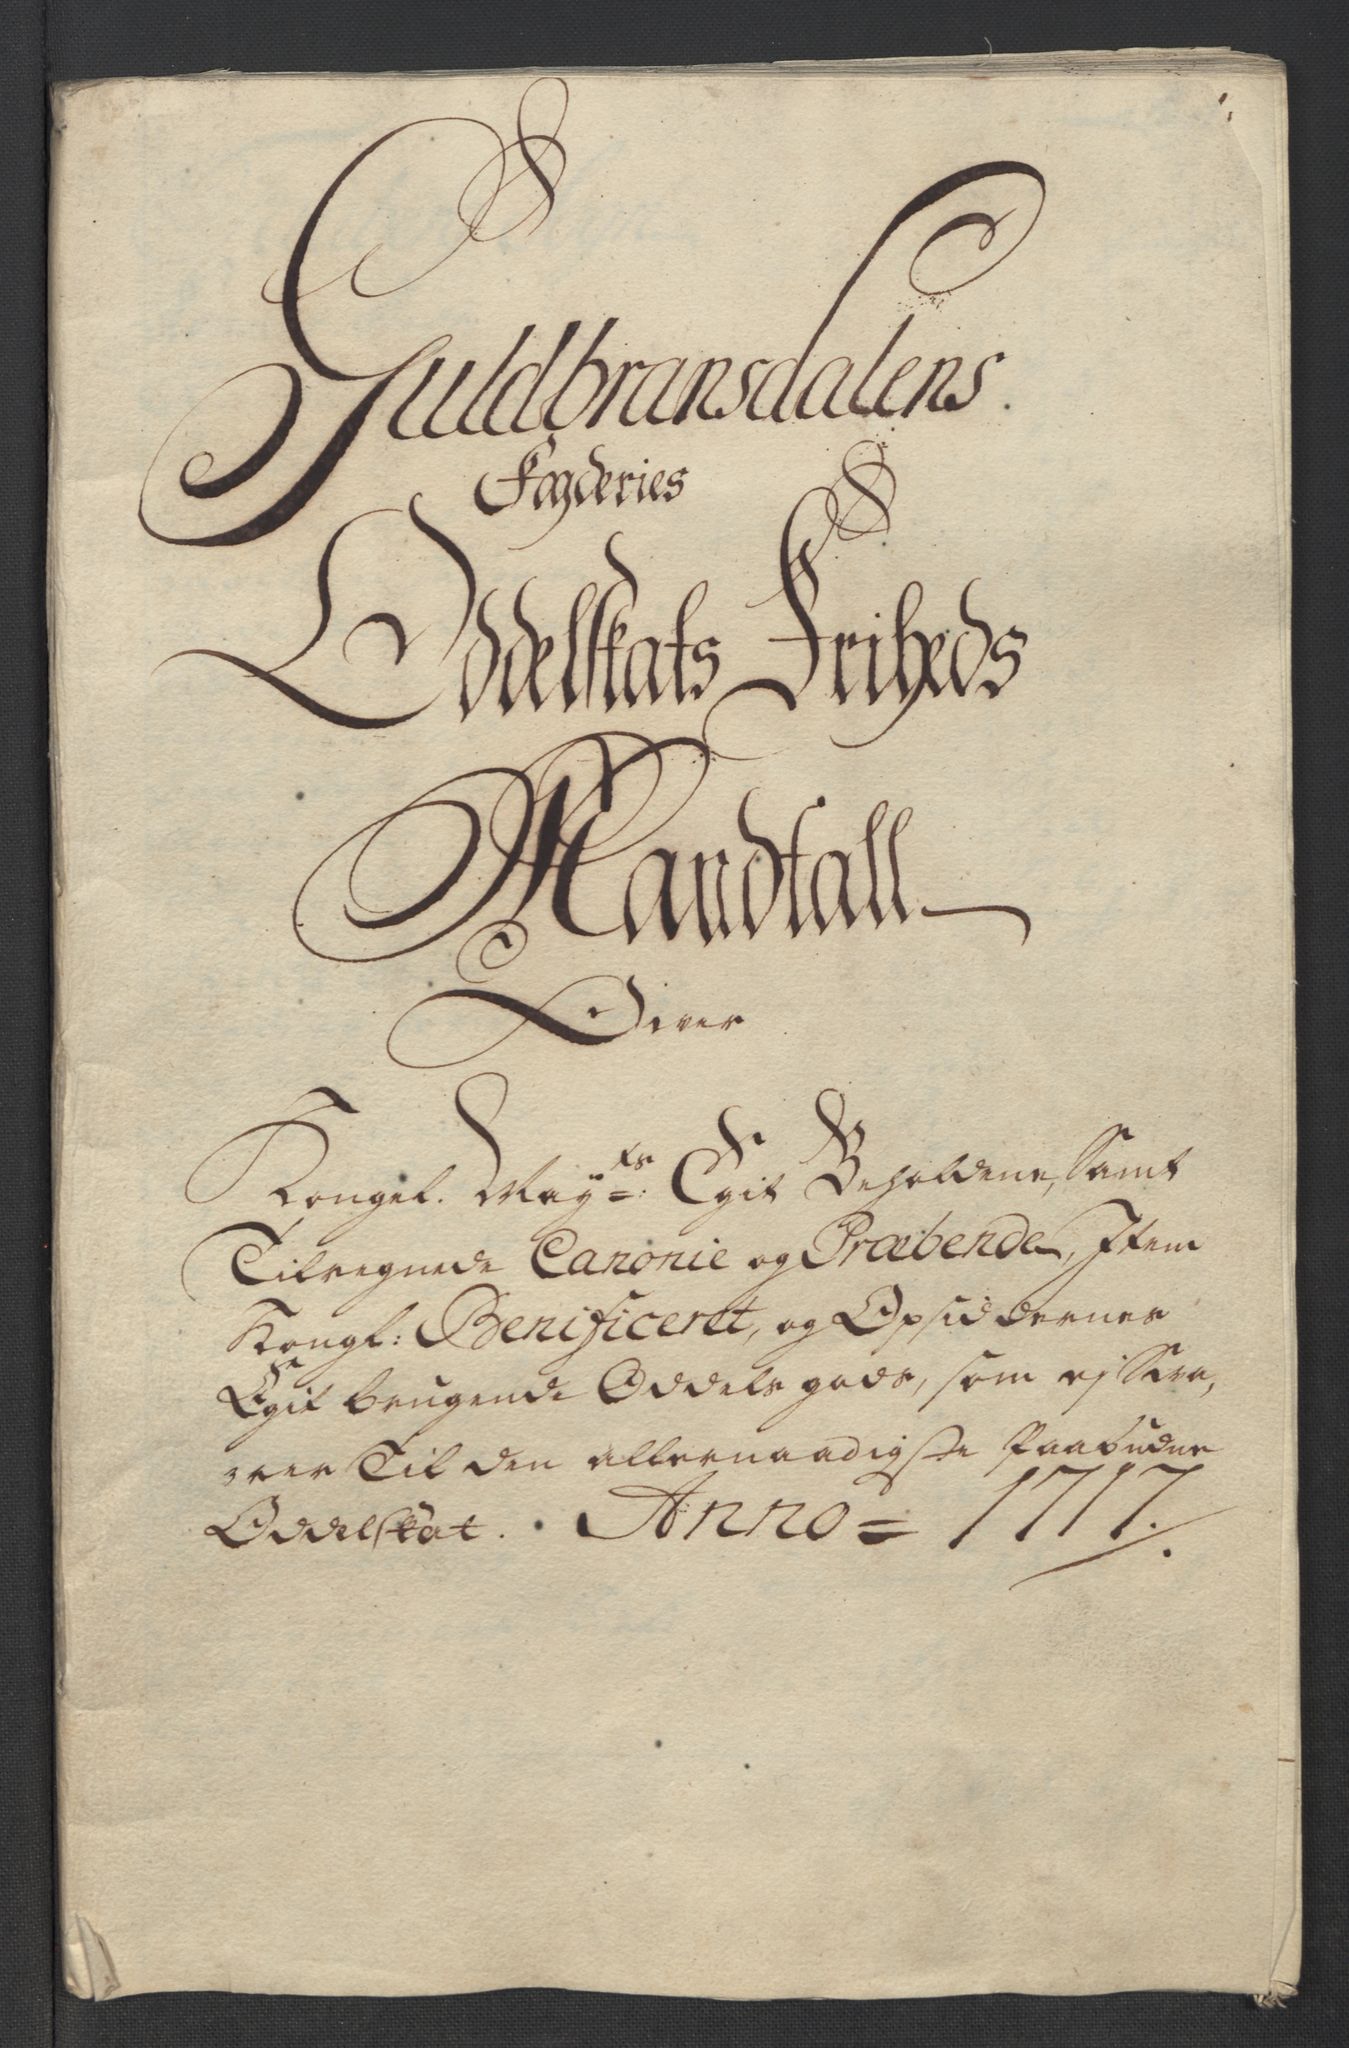 Guldbransdalens
Fogderies
Oddelskats Friheds
Mandtall
Over
Kongel. May:ts Egit Beholdene, Samt
Tilregnede Canonie og Præbende, Item
Kongl: Benificeret, og Opsiddernes
Egit brugende Oddels gods, som ej Sva,
rer Til den allernaadigste Paabudne
Oddelskat. Anno = 1717.